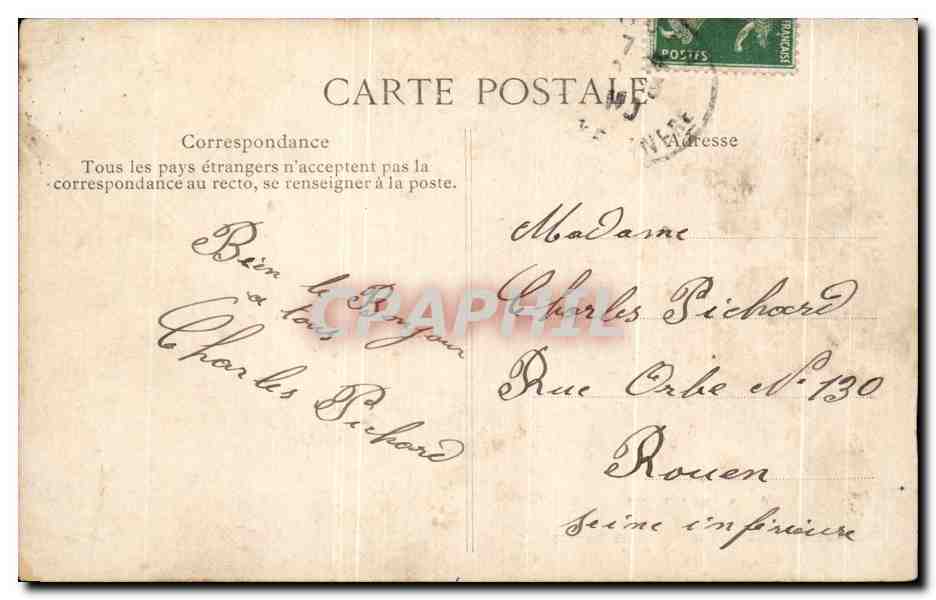 FRANÇAISE
POSTES
7
CARTE POSTALE
Correspondance
Tous les pays étrangers n'acceptent pas la
correspondance au recto, se renseigner à la poste.
Adresse
Bien le Bonjour
a tous
Charles Pichard
Madame
Charles Pichard
Rue Orbe N° 130
Rouen
Seine inférieure
CPAPHIL